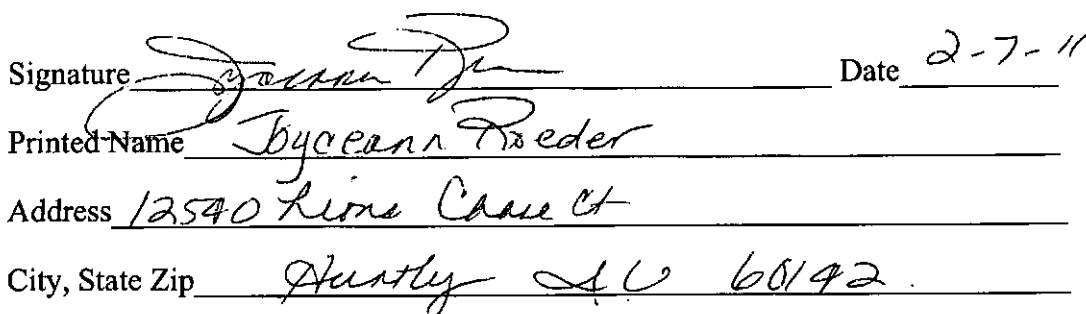 Signature Joyceann R Date 2-7-11
Printed Name Joyceann Roeder
Address 12540 Lions Chase Ct
City, State Zip Huntly IL 60142